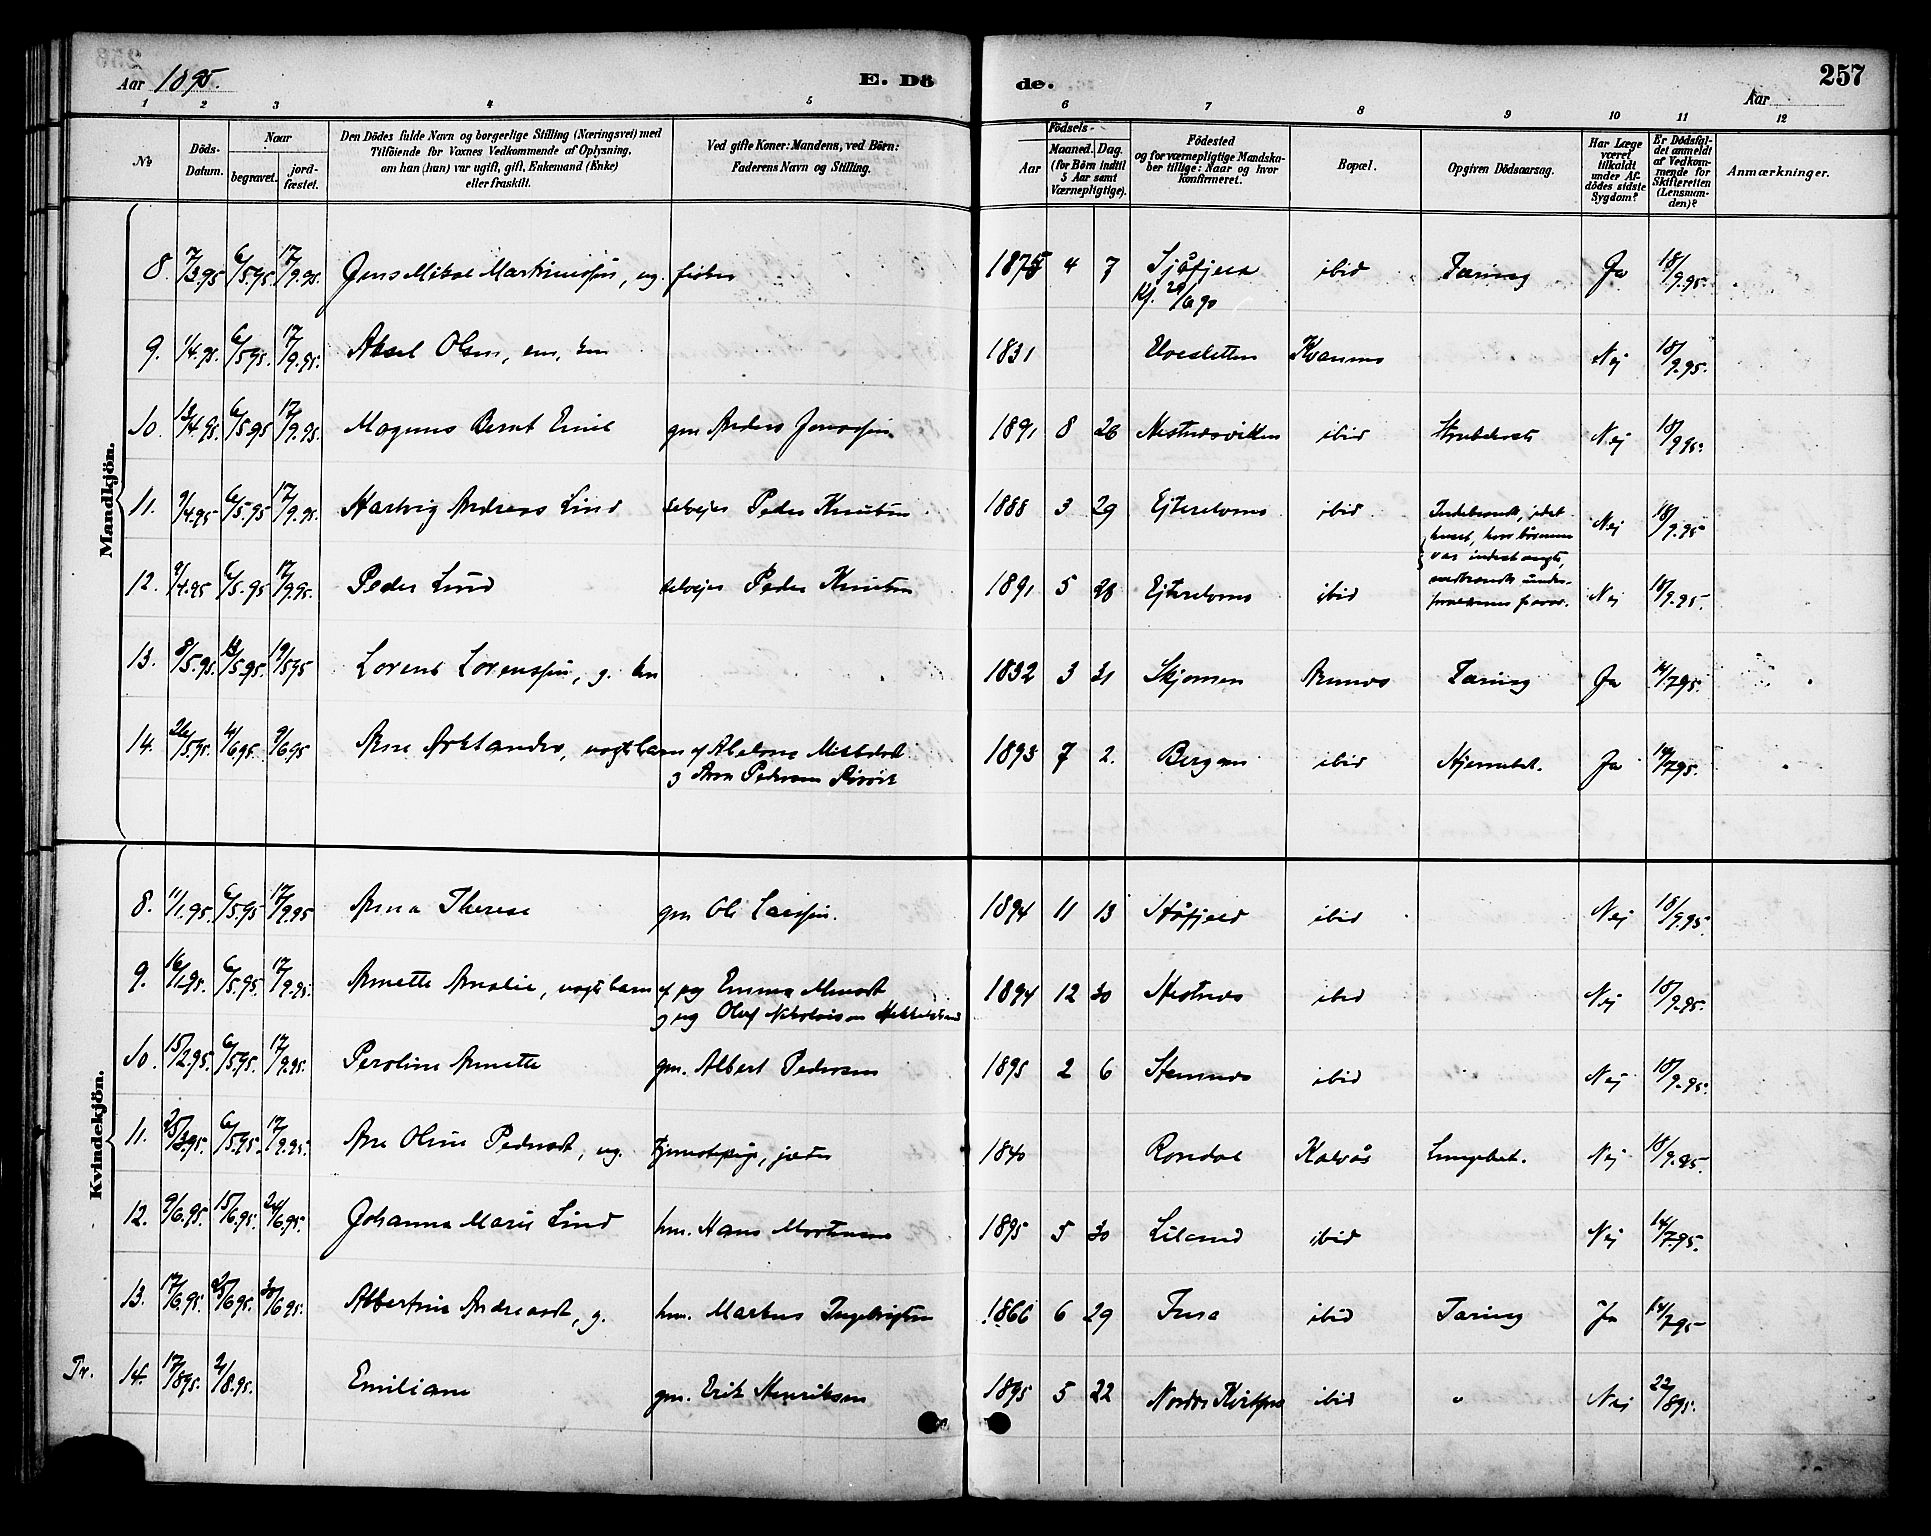 Aar 1895.
E. Dö
de.
257
Aar
1 2 3 4 5 6 7 8 9 10 11 12
No
Döds-Datum.
Naar
begravet.
jordfæstet.
Den Dödes fulde Navn og borgerlige Stilling (Næringsvei) med
Tilföiende for Voxnes Vedkommende af Oplysning,
om han (hun) var ugift, gift, Enkemand (Enke)
eller fraskilt.
Ved gifte Koner: Mandens, ved Börn:
Faderens Navn og Stilling.
Födsels-
Aar
Maaned. Dag.
(for Börn indtil
5 Aar samt
Værnepligtige).
Födested
og for værnepligtige Mandska-
ber tillige: Naar og hvor
konfirmeret.
Bopæl.
Opgiven Dödsaarsag.
Har Læge
været
tilkaldt
under Af-
dödes sidste
Sygdom?
Er Dödsfal-
det anmeldt
af Vedkom-
mende for
Skifteretten
(Lensman-
den)?
Anmærkninger.
Mandkjön.
8. 7/3.95 6/5.95 17/9.95. Jens Mikal Martinussen, ug. fisker 1875 4 7 ibid Tæring Ja 18/9.95.
Kf. 29/6 90
9. 1/4.95. 6/5.95 17/9.95. Aksel Olsen, em, 1831 Nej 18/9.95.
10. 13/4.95. 6/5.95 17/9.95. Magnus Bernt Emil gm Anders Jonassen 1891 8 26 ibid Nej 18/9.95.
11. 9/4.95 6/5.95 17/9.95. Hartvig Andreas Lind selvejer Peder Knutsen 1888 3 29 ibid Indebrændt, idet Nej 18/9.95
huset, hvor börnene
var indestængte,
nedbrændte under
forældrenes fravær.
12. 9/4.95 6/5.95 17/9.95. Peder Lind selvejer Peder Knutsen 1891 5 28 ibid Nej 18/9.95.
13. 8/5.95. 13/5.95. 19/5 95 Lorents Lorenssen, g. 1832 3 31 Skjomen Tæring Ja 14/7 95.
14. 26/5.95. 4/6 95. 9/6 95 Arne, uægte barn af 1893 7 2. Bergen ibid Hjernebet. Ja 14/7 95.
g Arn Pedersen
Kvindekjön.
8. 11/1.95. 6/5 95 17/9.95 Anna Therese gm Ole Larssen. 1894 11 13 Håfjeld ibid Nej 18/9.95.
9. 16/1.95. 6/5.95. 17/9.95. Annette Amalie, uægte barn af pg Emma 1894 12 30 Hestnes ibid Nej 18/9.95.
g ug Oluf Nikolaisen
10. 15/2.95. 6/5.95. 17/9.95. Peroline Annette gm. Albert Pedersen 1895 2 6 Stennes ibid Nej 18/9.95.
11. 25/3.95. 6/5.95. 17/9.95. Ane Oline Pedersdt, ug. tjenestepige 1840 Lungebet. Nej 18/9.95.
12. 9/6.95. 15/6.95. 24/6.95. Johanna Marie Lind hm. Hans Mortensen 1895 5 30 Liland ibid Nej 14/7.95.
13. 17/6.95. 25/6 95. 30/6 95. Albertine Andreasdt, g. hm. Markus Ingebrigtsen 1866 6 29 ibid Tæring Ja 14/7 95
Tv. 14. 17/8 95. 2/8.95. Emiliane gm. Erik Henriksen 1895 5 22 ibid " Nej 22/8 95.